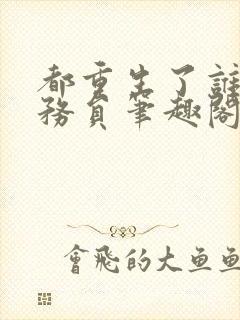 都重生了誰
務員筆趣閣
會飛的大魚魚